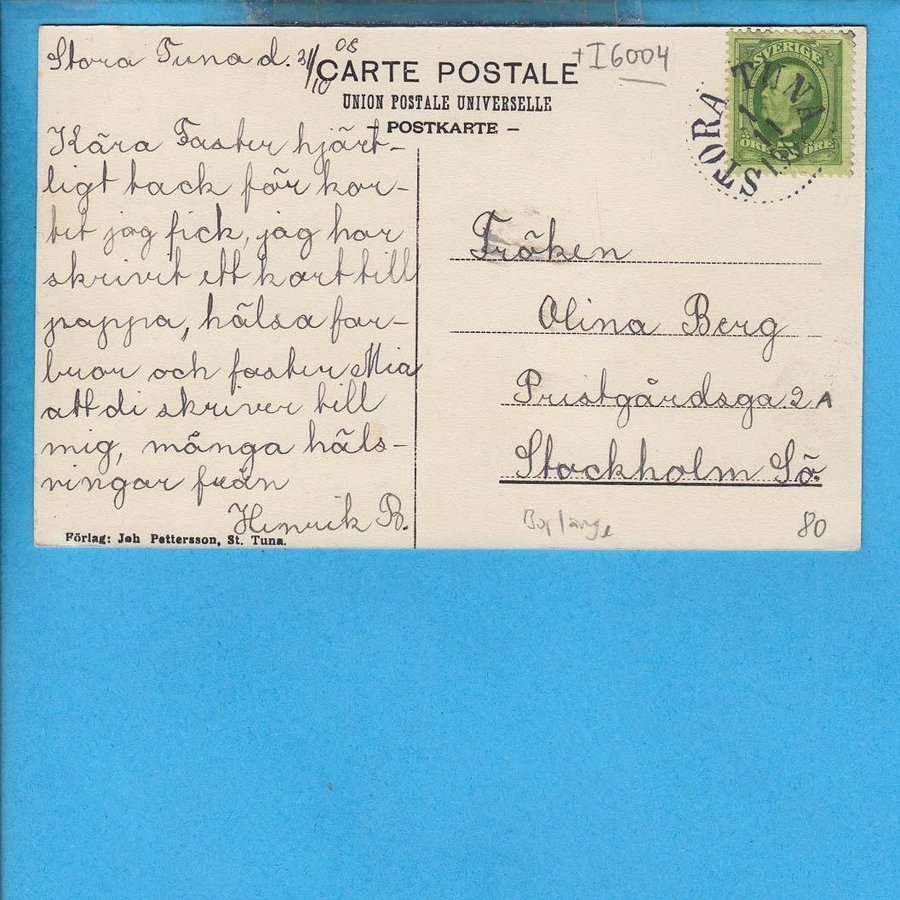 Stora Tuna d. 31/10 08
CARTE POSTALE
UNION POSTALE UNIVERSELLE
POSTKARTE –
+I6004
SVERIGE
ÖRE ÖRE
STORA TUNA
Kära Faster hjärt-
ligt tack för kor-
tet jag fick, jag har
skrivit ett kort till
pappa, hälsa far-
bror och faster Mia
att di skriver till
mig, många häls-
ningar från
Henrik B.
Fröken
Olina Berg
Pristgårdsga 2 A
Stockholm Sö.
Förlag: Joh Pettersson, St. Tuna.
Borlänge
80